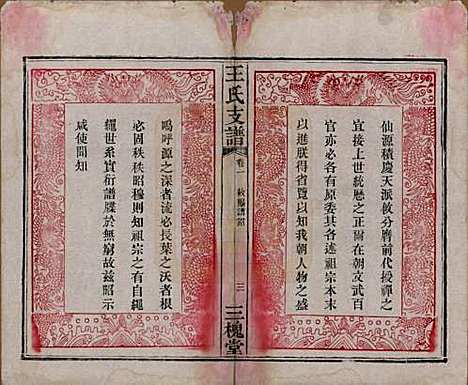 仙源積慶天派攸分膺前代授禪之
宜接上世統歷之正爾在朝文武百
官亦必各有原委其各述祖宗本末
以進朕得省覽以知我朝人物之盛
王氏支譜
卷一
敕賜譜詔
三
三槐堂
嗚呼源之深者流必長葉之沃者根
必固秩秩昭穆則知祖宗之有自繩
繩世系實衍譜牒於無窮故兹昭示
咸使聞知